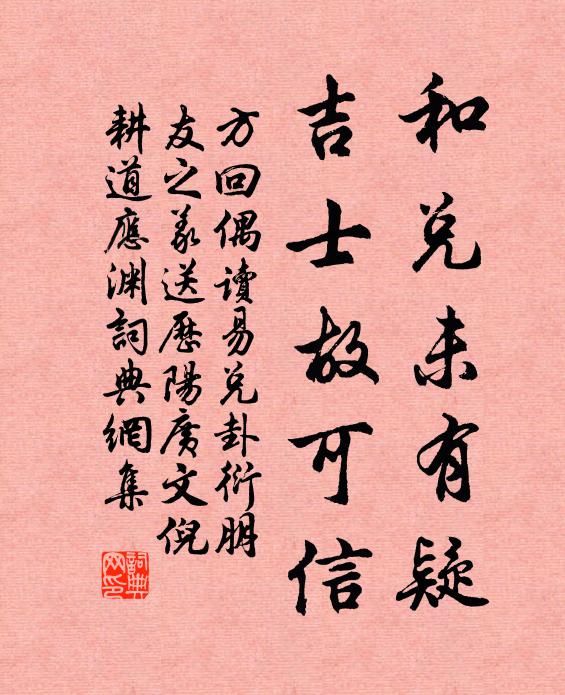 和兑未有疑
吉士故可信
方回偶讀易兑卦衍朋
友之義送歷陽廣文倪
耕道應渊詞典網集
詞典
网印